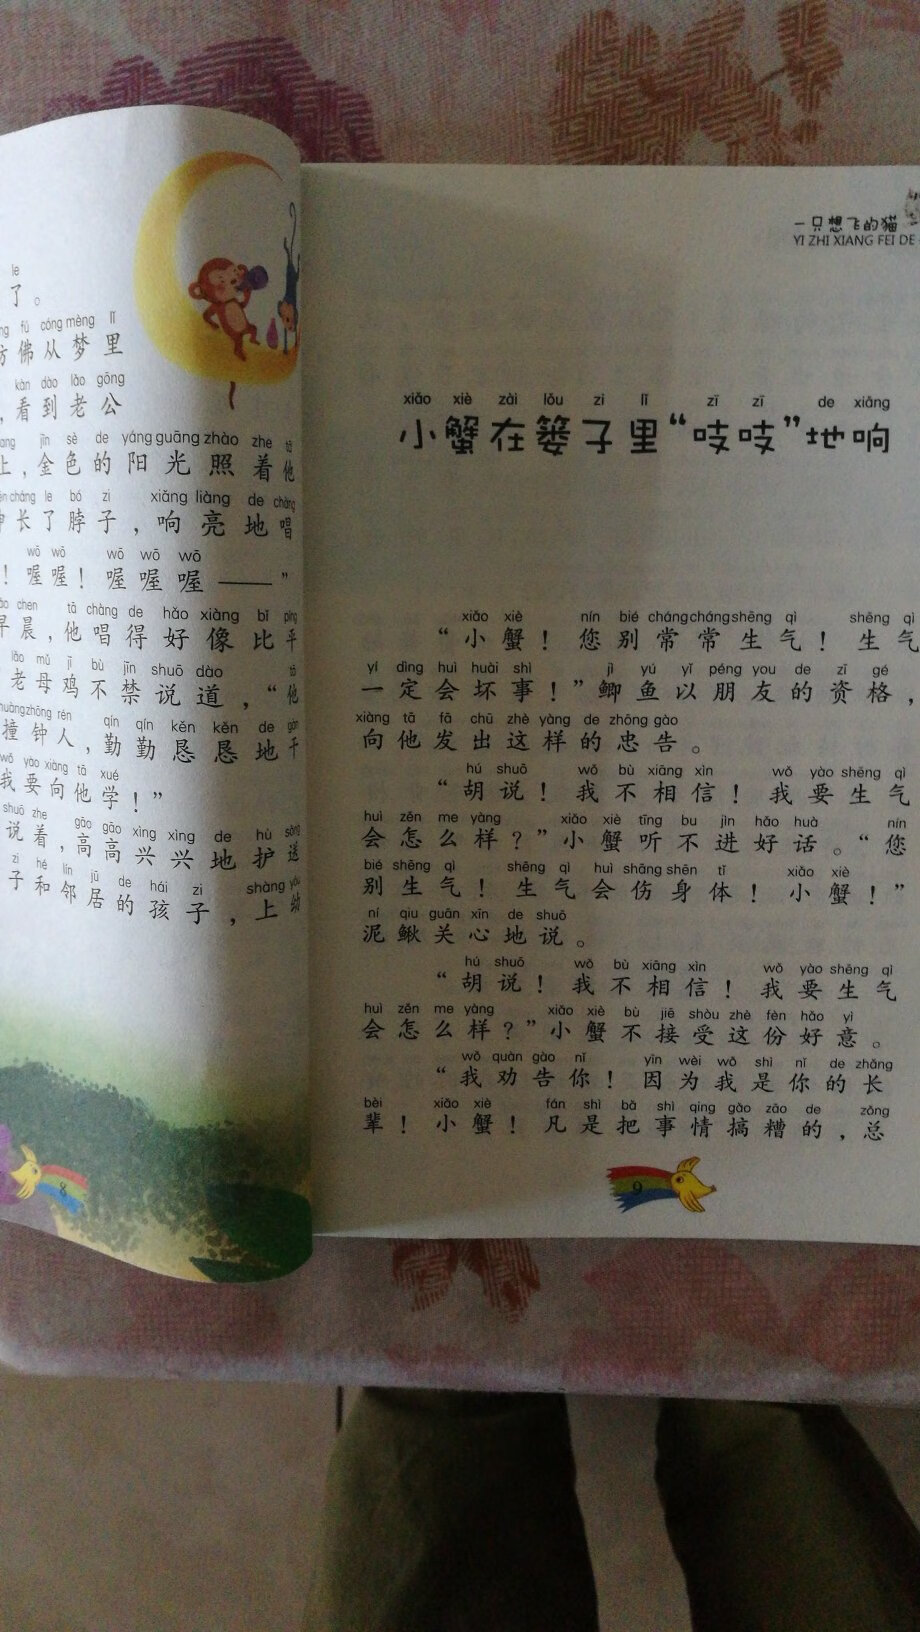 le
了。
fú cóng mèng lǐ
佛从梦里
kàn dào lǎo gōng
，看到老公
jīn sè de yáng guāng zhào zhe tā
上，金色的阳光照着他
cháng le bó zi xiǎng liàng de chàng
长了脖子，响亮地唱
wō wō wō wō wō
！喔喔！喔喔喔——”
chen tā chàng de hǎo xiàng bǐ píng
早晨，他唱得好像比平
lǎo mǔ jī bù jīn shuō dào tā
老母鸡不禁说道，“他
zhōng rén qín qín kěn kěn de gàn
撞钟人，勤勤恳恳地干
wǒ yào xiàng tā xué
我要向他学！”
shuō zhe gāo gāo xìng xìng de hù sòng
说着，高高兴兴地护送
zi hé lín jū de hái zi shàng yòu
子和邻居的孩子，上幼
8
一只想飞的猫
YI ZHI XIANG FEI DE
xiǎo xiè zài lǒu zi lǐ zī zī de xiǎng
小蟹在篓子里“吱吱”地响
xiǎo xiè nín bié cháng cháng shēng qì shēng qì
“小蟹！您别常常生气！生气
yí dìng huì huài shì jì yú yǐ péng you de zī gé
一定会坏事！”鲫鱼以朋友的资格，
xiàng tā fā chū zhè yàng de zhōng gào
向他发出这样的忠告。
hú shuō wǒ bù xiāng xìn wǒ yào shēng qì
“胡说！我不相信！我要生气
huì zěn me yàng xiǎo xiè tīng bu jìn hǎo huà nín
会怎么样？”小蟹听不进好话。“您
bié shēng qì shēng qì huì shāng shēn tǐ xiǎo xiè
别生气！生气会伤身体！小蟹！”
ní qiu guān xīn de shuō
泥鳅关心地说。
hú shuō wǒ bù xiāng xìn wǒ yào shēng qì
“胡说！我不相信！我要生气
huì zěn me yàng xiǎo xiè bù jiē shòu zhè fèn hǎo yì
会怎么样？”小蟹不接受这份好意。
wǒ quàn gào nǐ yīn wèi wǒ shì nǐ de zhǎng
“我劝告你！因为我是你的长
bèi xiǎo xiè fán shì bǎ shì qing gǎo zāo de zǒng
辈！小蟹！凡是把事情搞糟的，总
9